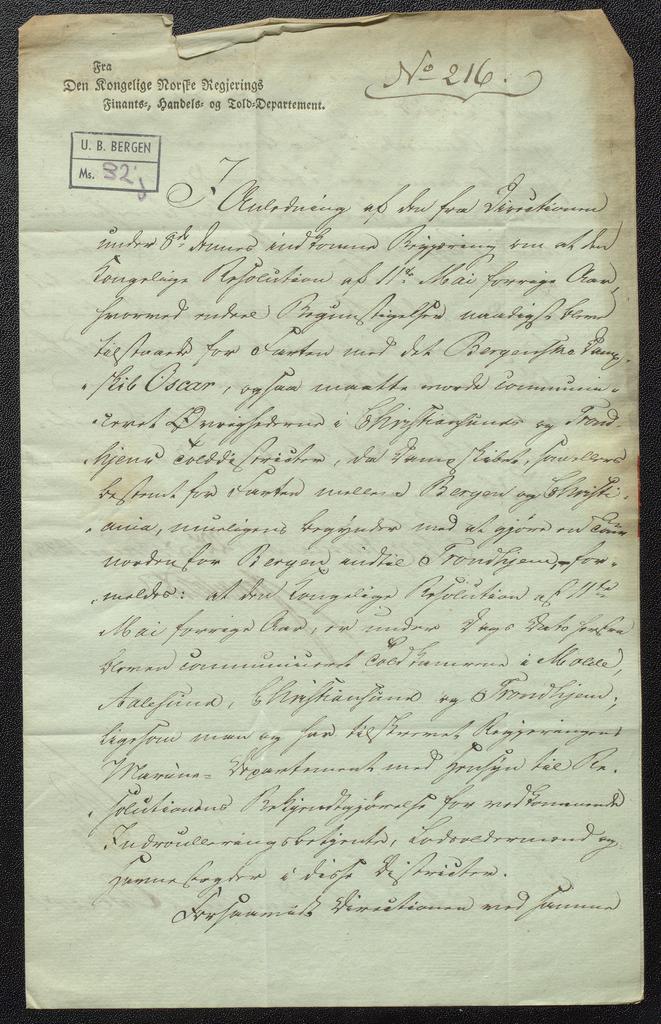 Fra
Den Kongelige Norske Regjerings
Finants-, Handels- og Told-Departement.
No 216.
U. B. BERGEN
Ms. 32
I Anledning af den fra Directionen
under 8de dennes indkomne Begjæring om at den
Kongelige Resolution af 11te Mai forrige Aar,
hvorved endeel Begunstigelser naadigst bleve
tilstaaede for Farten med det Bergenske Damp-
skib Oscar, ogsaa maatte vorde communi-
ceret Øvrighederne i Christiansunds og Trond-
hjems Tolddistricter, da Dampskibet, som ellers
bestemt for Farten mellem Bergen og Christi-
ania, mueligens begynder med at gjøre en Tour
nordenfor Bergen indtil Trondhjem, for-
meldes: at den Kongelige Resolution af 11te
Mai forrige Aar, er under Dags Dato herfra
bleven communiceret Toldkamrene i Molde,
Aalesund, Christiansund og Trondhjem;
ligesom man og har tilskrevet Regjeringens
Marine-Departement med Hensyn til Re-
solutionens Bekjendtgjørelse for vedkommende
Indroulleringsbetjente, Lodsoldermænd og
Havnefogder i disse Districter.
Forsaavidt Directionen ved samme